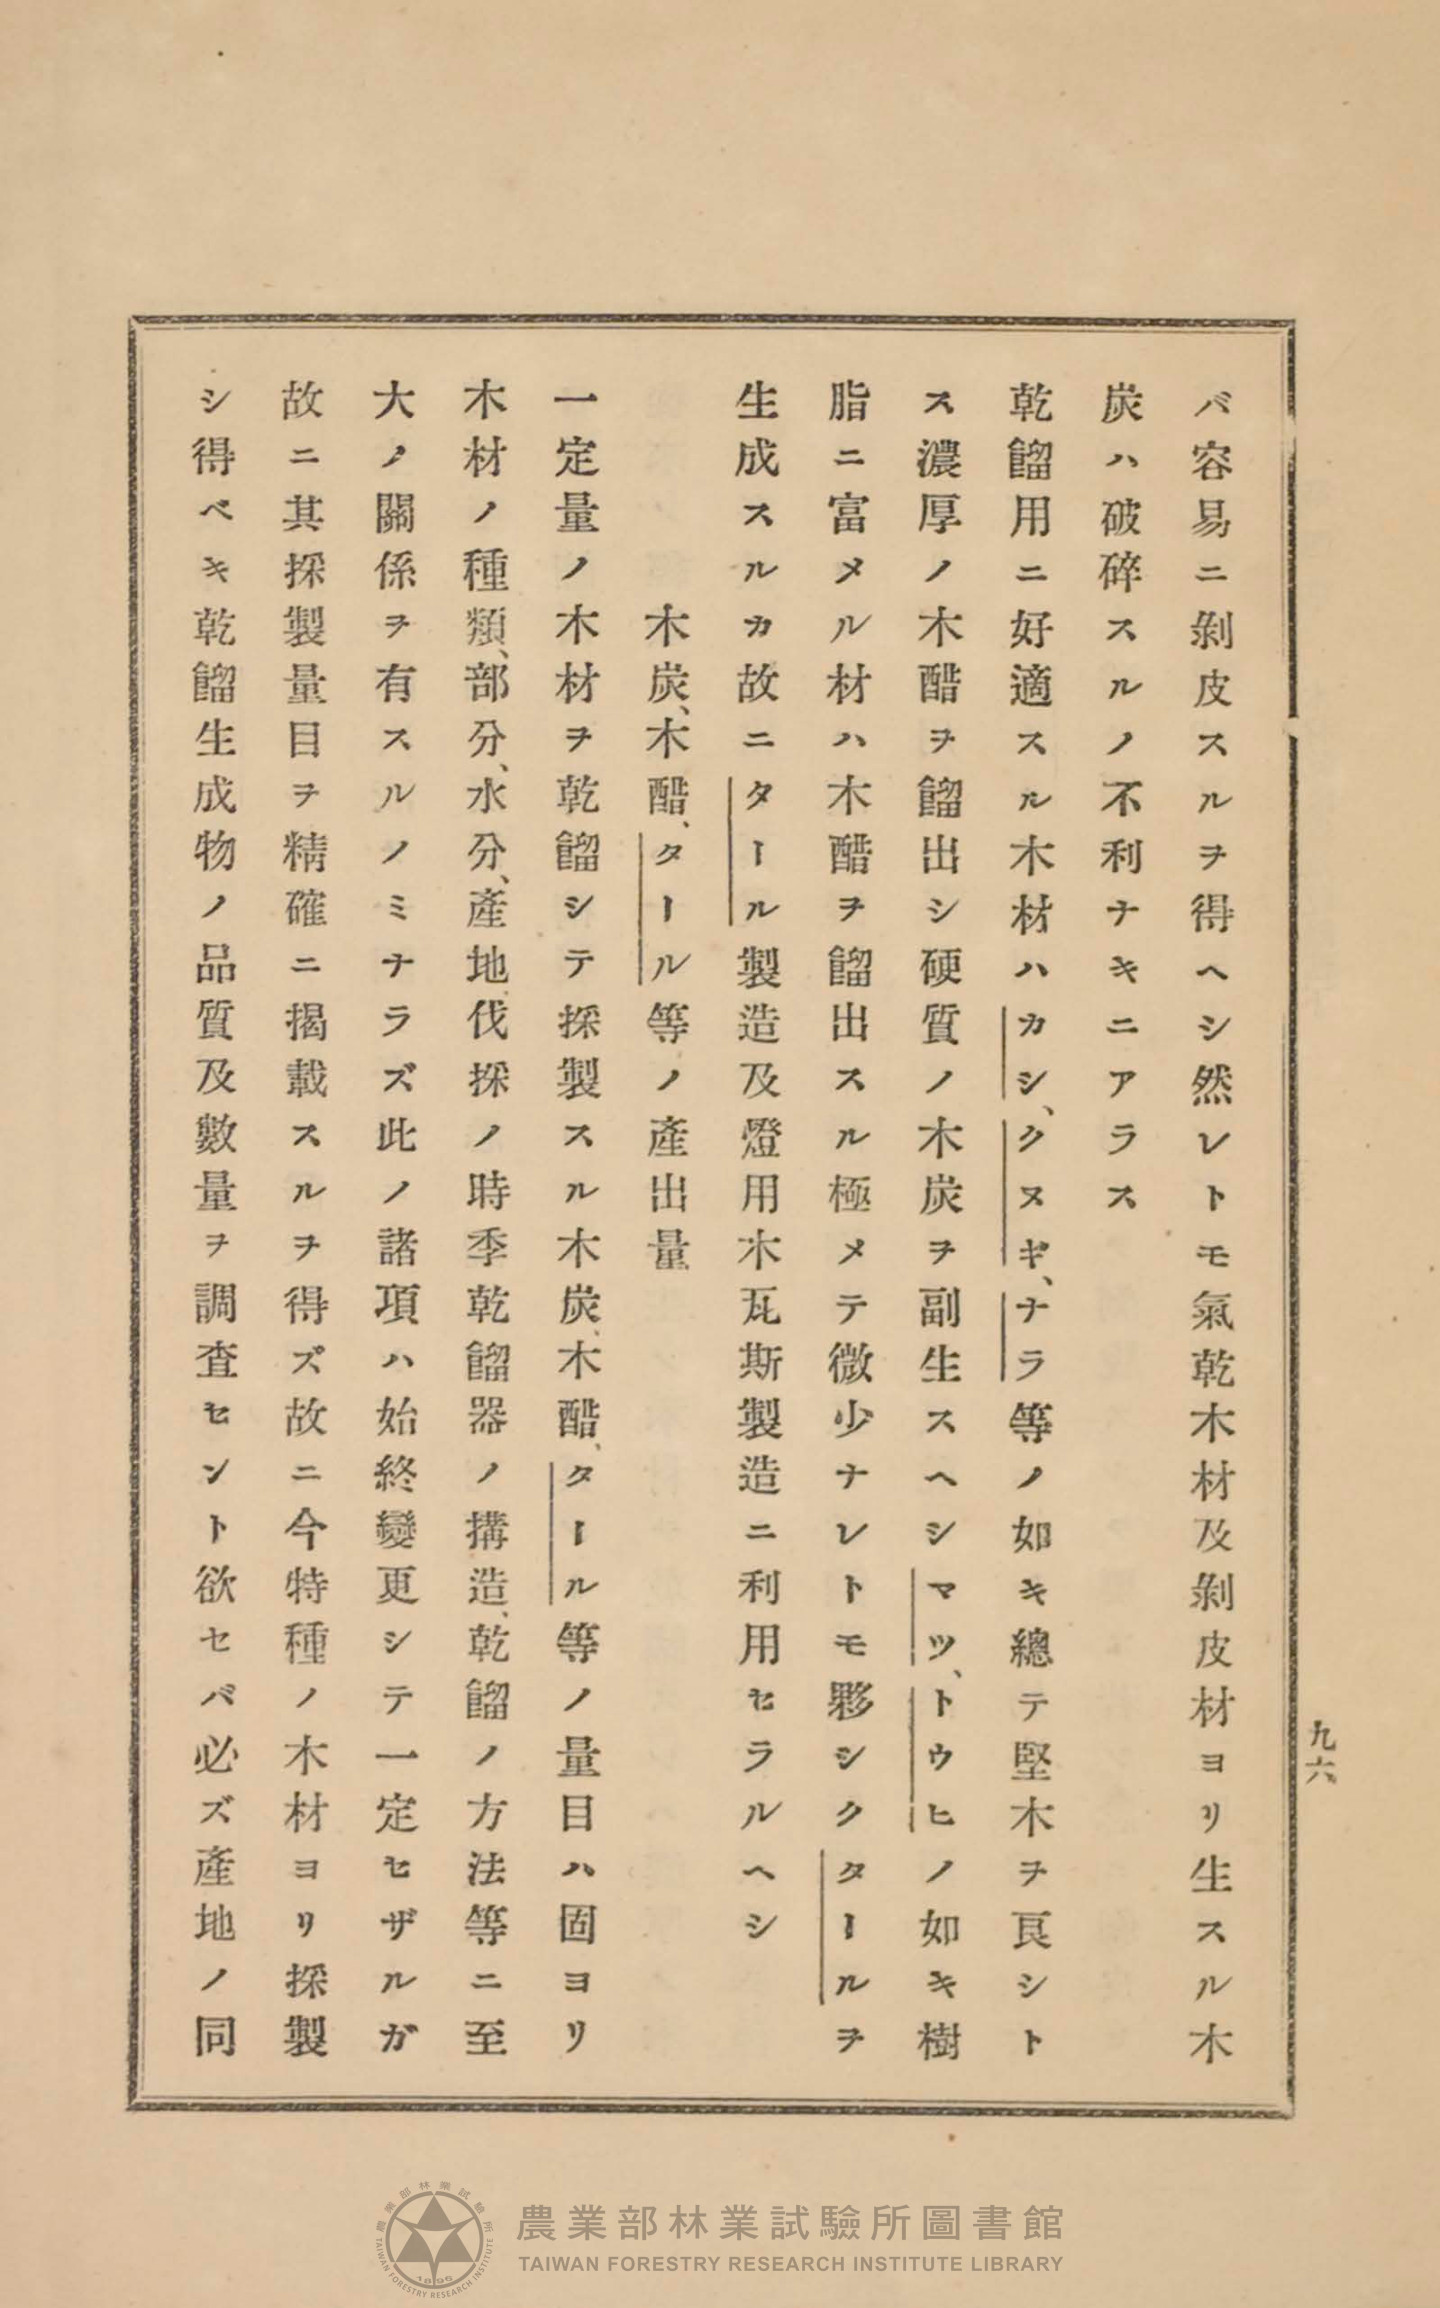 九六
バ容易ニ剝皮スルヲ得ヘシ然レトモ氣乾木材及剝皮材ヨリ生スル木
炭ハ破碎スルノ不利ナキニアラス
乾餾用ニ好適スル木材ハカシ、クヌギ、ナラ等ノ如キ總テ堅木ヲ良シト
ス濃厚ノ木醋ヲ餾出シ硬質ノ木炭ヲ副生スヘシマツ、トウヒノ如キ樹
脂ニ富メル材ハ木醋ヲ餾出スル極メテ微少ナレトモ夥シクタールヲ
生成スルカ故ニタール製造及燈用木瓦斯製造ニ利用セラルヘシ
木炭、木醋、タール等ノ產出量
一定量ノ木材ヲ乾餾シテ採製スル木炭、木醋、タール等ノ量目ハ固ヨリ
木材ノ種類、部分、水分、產地、伐採ノ時季乾餾器ノ搆造、乾餾ノ方法等ニ至
大ノ關係ヲ有スルノミナラズ此ノ諸項ハ始終變更シテ一定セザルガ
故ニ其採製量目ヲ精確ニ揭載スルヲ得ズ故ニ今特種ノ木材ヨリ採製
シ得ベキ乾餾生成物ノ品質及數量ヲ調查セント欲セバ必ズ產地ノ同
農業部林業試驗所圖書館
TAIWAN FORESTRY RESEARCH INSTITUTE LIBRARY
農業部林業試驗所
TAIWAN FORESTRY RESEARCH INSTITUTE
1896